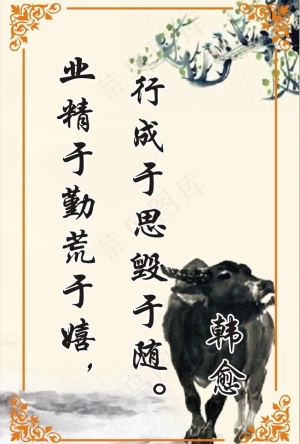 业精于勤荒于嬉，
行成于思毁于随。
韩愈